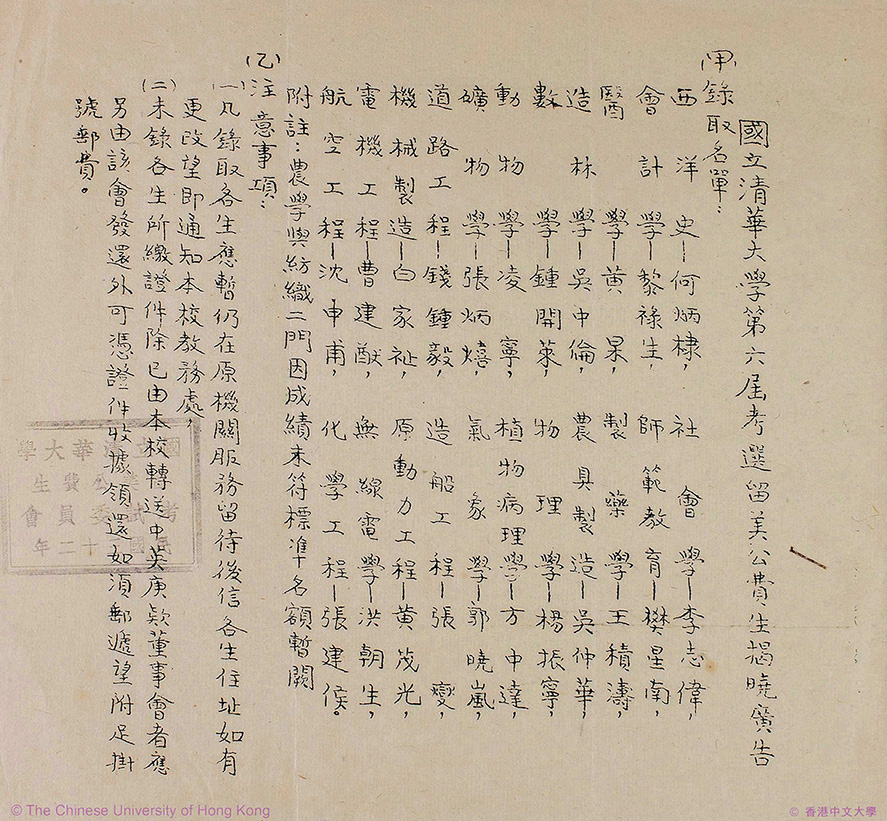 國立清華大學第六屆考選留美公費生揭曉廣告
(甲)錄取名單：
西洋史—何炳棣，社會學—李志偉，
會計學—黎祿生，師範教育—樊星南，
醫學—黄杲，製藥學—王積濤，
造林學—吳中倫，農具製造—吳仲華，
數學—鍾開萊，物理學—楊振寧，
動物學—凌寧，植物病理學—方中達，
礦物學—張炳熺，氣象學—郭曉嵐，
道路工程—錢鍾毅，造船工程—張燮，
機械製造—白家祉，原動力工程—黄茂光，
電機工程—曹建猷，無線電學—洪朝生，
航空工程—沈申甫，化學工程—張建侯。
附註：農學與紡織二門因成績未符標準十名額暫闕
(乙)注意事項：
(一)凡錄取各生應暫仍在原機關服務留待後信各生住址如有
更改望即通知本校教務處，
(二)未錄各生所繳證件除已由本校轉送中英庚欵董事會者應
另由該會發還外可憑證件收據領還如須郵遞望附足掛
號郵費。
國立清華大學
公費生
考試委員會
民國十二年
© The Chinese University of Hong Kong
© 香港中文大學